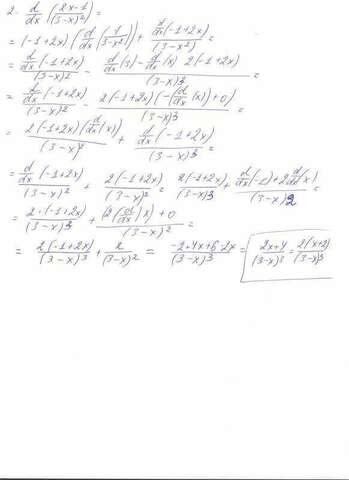 2. d/dx (2x-1/(3-x)²) =
= (-1+2x) (d/dx (1/(3-x)²)) + d/dx(-1+2x)/(3-x²) =
= d/dx(-1+2x)/(3-x)² - d/dx(3)-d/dx(x) 2(-1+2x)/(3-x)3 =
= d/dx(-1+2x)/(3-x)² - 2(-1+2x)(-(d/dx(x))+0)/(3-x)3 =
= 2(-1+2x)(d/dx(x))/(3-x)² + d/dx(-1+2x)/(3-x)3 =
= d/dx(-1+2x)/(3-x)² + 2(-1+2x)/(3-x)² = 2(-1+2x)/(3-x)3 + d/dx(-1)+2d/dx(x)/(3-x)2 =
= 2·(-1+2x)/(3-x)3 + (2(d/dx)x)+0/(3-x)² =
= 2(-1+2x)/(3-x)³ + 2/(3-x)² = -2+4x+6-2x/(3-x)³ = 2x+4/(3-x)³ = 2(x+2)/(3-x)³